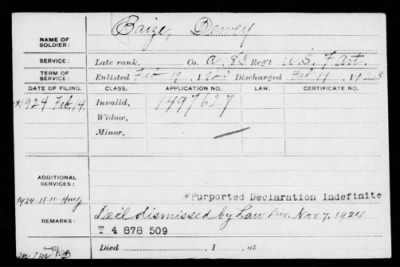 NAME OF SOLDIER: Baize, Dewey
SERVICE: Late rank, Co. A, 83 Reg't U.S. F. Art.
TERM OF SERVICE: Enlisted Feb 19, 1920 Discharged Feb 1923
DATE OF FILING. CLASS. APPLICATION NO. LAW. CERTIFICATE NO.
1924 Feb. 14 Invalid, 1497627
Widow,
Minor,
ADDITIONAL SERVICES:
*Purported Declaration Indefinite
REMARKS: Decl dismissed by Law Div. Nov 7, 1924
T 4 878 509
Died , 1 , at